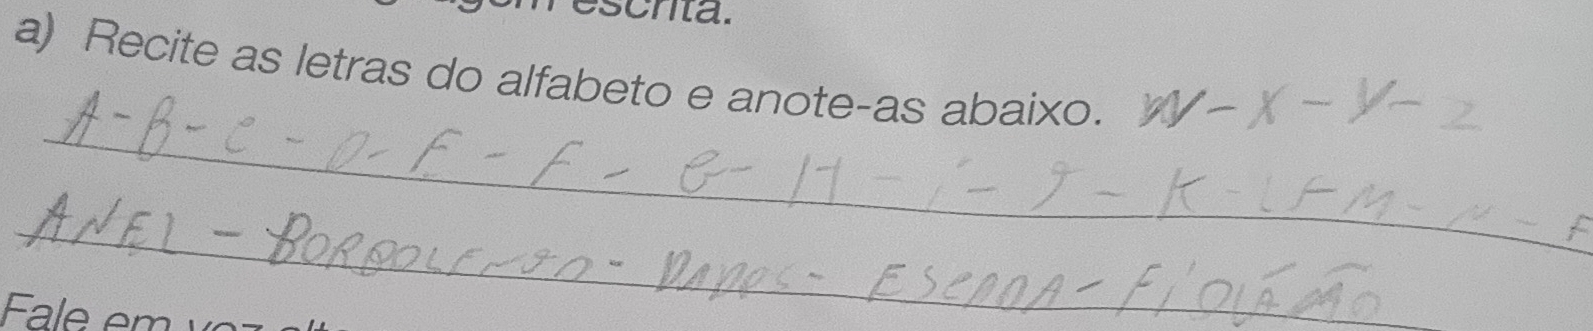 escrita.
a) Recite as letras do alfabeto e anote-as abaixo. W-X-Y-Z
A-B-C-D-E-F-G-H-i-J-K-L-M-N-
ANEL - DADOS- ESCADA-
Fale em voz